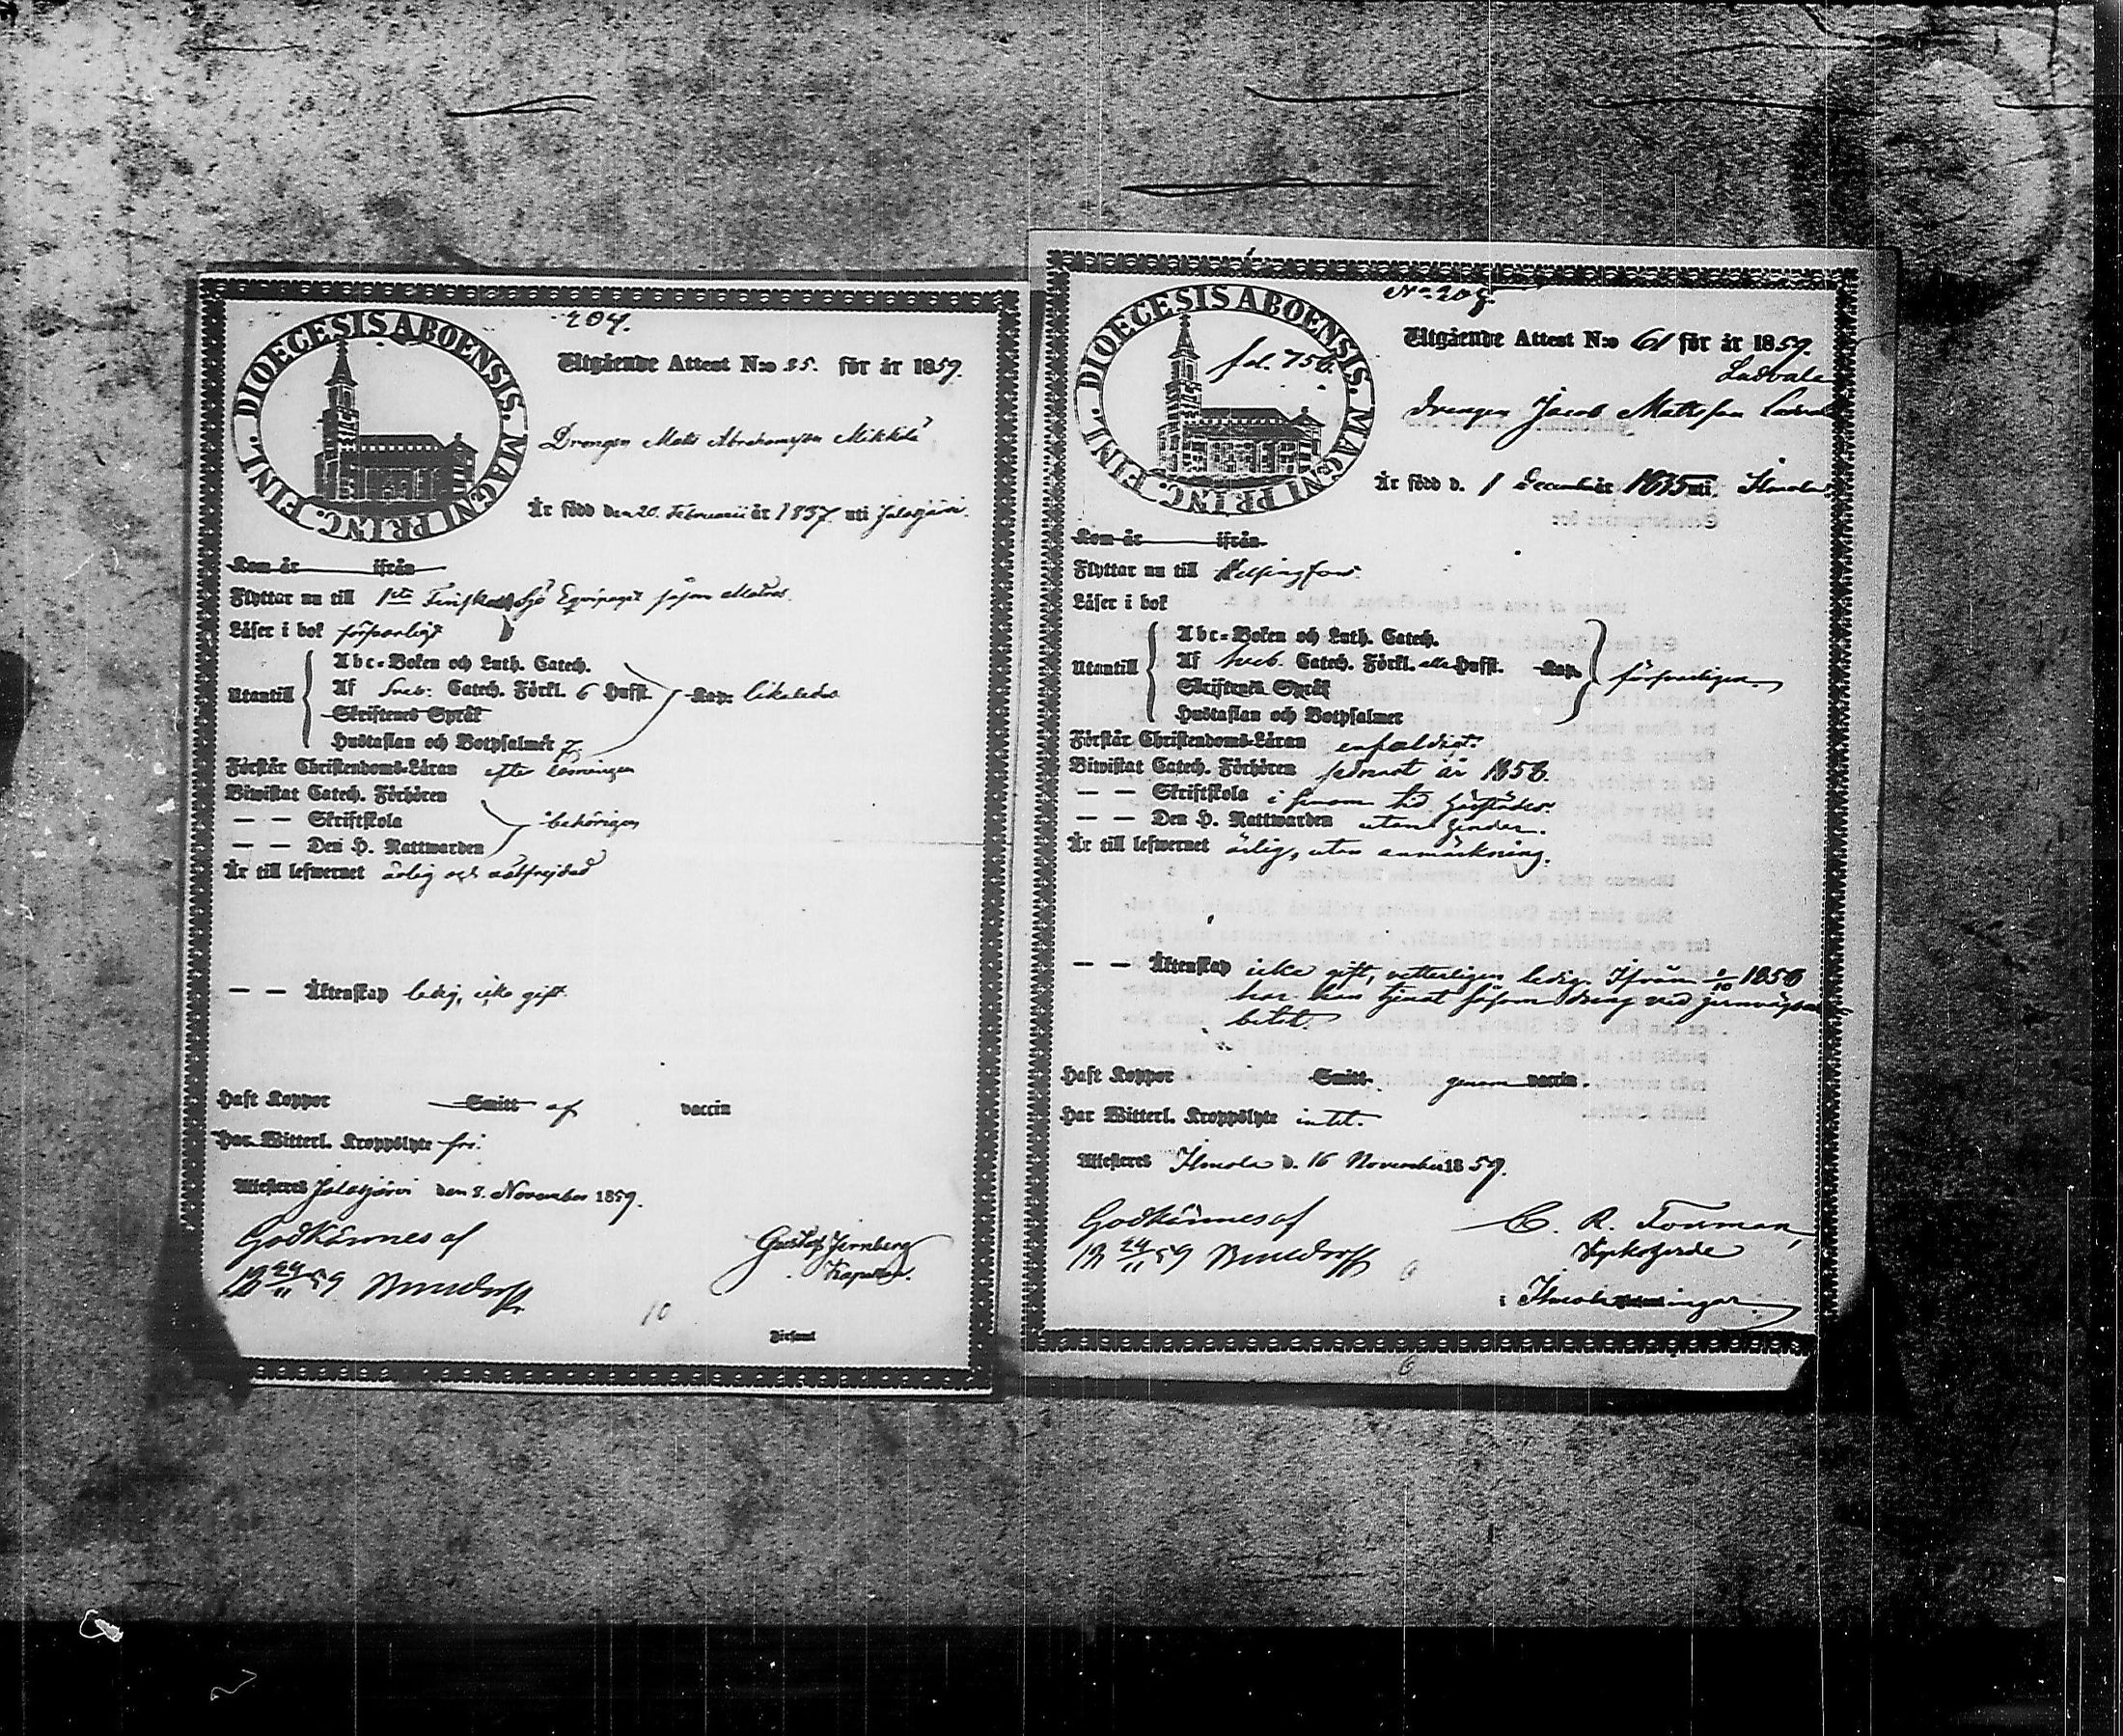 204.
DIOECESIS ABOENSIS. MAGNI PRINC. FINL.
Utgående Attest N:o 35. för år 1859.
Drengen Matts Abrahamsson Mikkilä
Är född den 20. Februarii år 1837. uti Jalasjärvi.
Kom år ifrån
Flyttar nu till 1sta Finska Sjö Equipaget såsom Matros.
Läser i bok försvarligt
Abc-Boken och Luth. Catech.
Utantill Af Sveb: Catech. Förkl. 6 Hufst. Kap: likaledes
Skriftenes Språk
Hustaflan och Botpsalmer 7.
Förstår Christendoms-Läran efter läsningen
Biwistat Catech. Förhören
— — Skriftskola behörigen
— — Den H. Nattwarden
Är till lefwernet ärlig och välfrejdad
— — Äktenskap ledig, icke gift.
Haft Koppor Smitt af vaccin
Har Witterl. Kroppslyte fri.
Attesteras Jalasjärvi den 8. November 1859.
Godkännes af
Gustaf Jernberg
18 24/11 59
Kapellan.
10
Församl
No 208.
DIOECESIS ABOENSIS. MAGNI PRINC. FINL.
fol. 756.
Utgående Attest N:o 61 för år 1859.
Ladvala
Drengen Jacob Mattsson
Är född d. 1 December år 1835 uti Ilmola
Kom år ifrån
Flyttar nu till Helsingfors.
Läser i bok
Abc-Boken och Luth. Catech.
Utantill Af Sveb. Catech. Förkl. alla Hufst. Kap. försvarligen.
Skriftenes Språk
Hustaflan och Botpsalmer
Förstår Christendoms-Läran enfaldigt.
Biwistat Catech. Förhören sednast år 1858
— — Skriftskola i sinom tid härstädes.
— — Den H. Nattwarden utan hinder.
Är till lefwernet ärlig, utan anmärkning.
— — Äktenskap icke gift, vetterligen ledig. Ifrån 1/10 1858
har han tjent såsom dreng ved jernvägsar
betet
Haft Koppor Smitt genom vaccin.
Har Witterl. Kroppslyte intet.
Attesteras Ilmola d. 16 November 1859.
Godkännes af
C. R. Forsman,
18 24/11 59
Kyrkoherde
i Ilmola